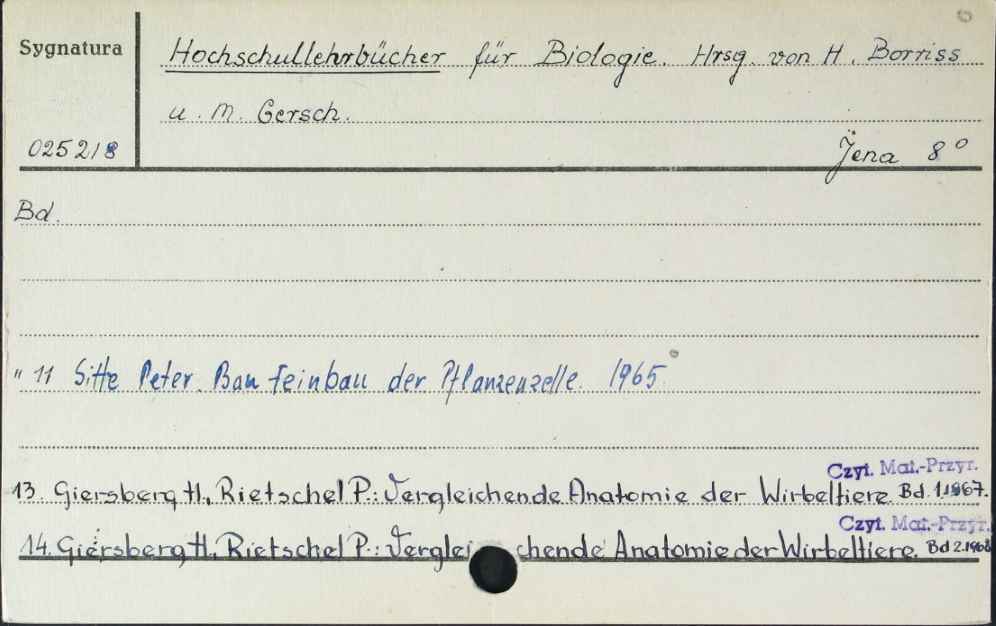 Sygnatura
Hochschullehrbücher für Biologie. Hrsg. von H. Borriss
u. M. Gersch.
025218
Jena 8°
Bd.
" 11 Sitte Peter. Bau Feinbau der Pflanzenzelle. 1965
Czyt. Mat.-Przyr.
13. Giersberg H., Rietschel P.: Vergleichende Anatomie der Wirbeltiere. Bd. 1.1967.
Czyt. Mat.-Przyr.
14. Giersberg H., Rietschel P.: Vergleichende Anatomie der Wirbeltiere. Bd 2.1968